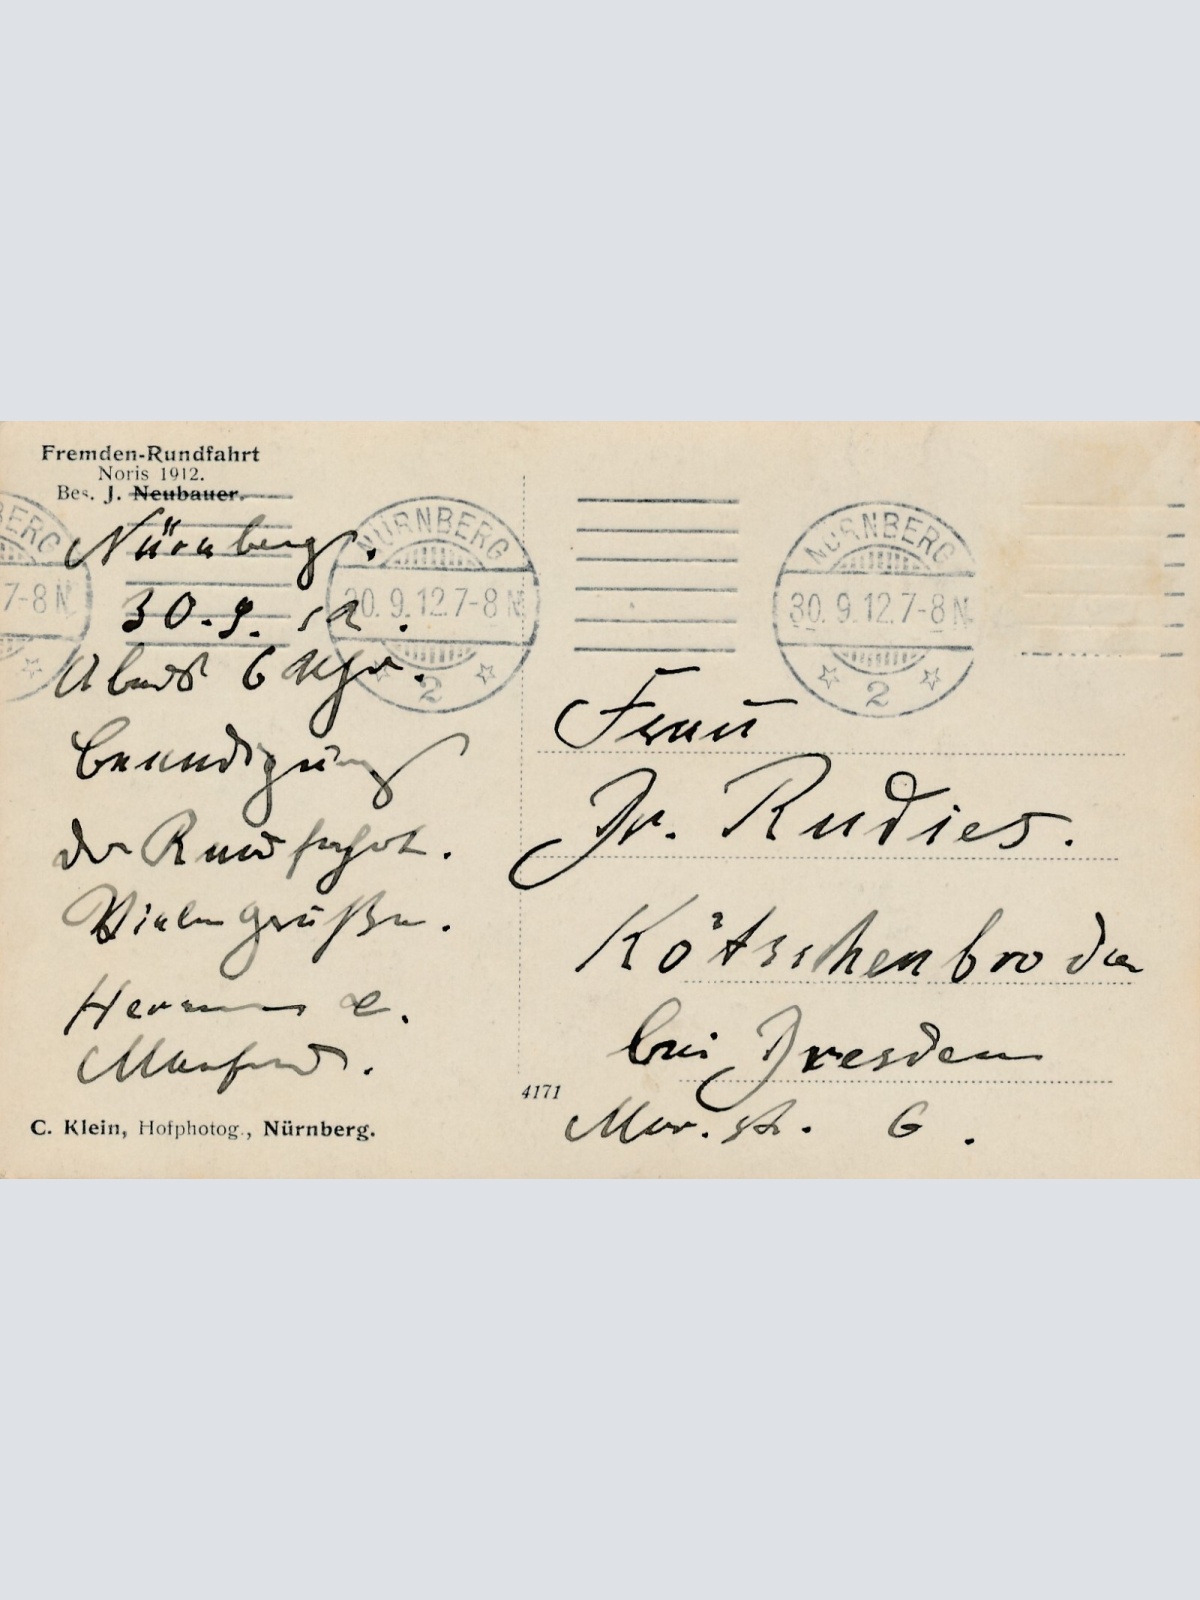 Fremden-Rundfahrt
Noris 1912.
Bes. J. Neubauer.
NÜRNBERG
30.9.12.7-8N
2
NÜRNBERG
30.9.12.7-8N
2
BERG
7-8N
Nürnberg.
30.9.12.
Abends 6 Uhr.
Beendigung
der Rundfahrt.
Viele Grüße.
Hermann &.
Manfred.
C. Klein, Hofphotog., Nürnberg.
4171
Frau
Dr. Rudies.
Kötzschenbroda
bei Dresden
str. 6.